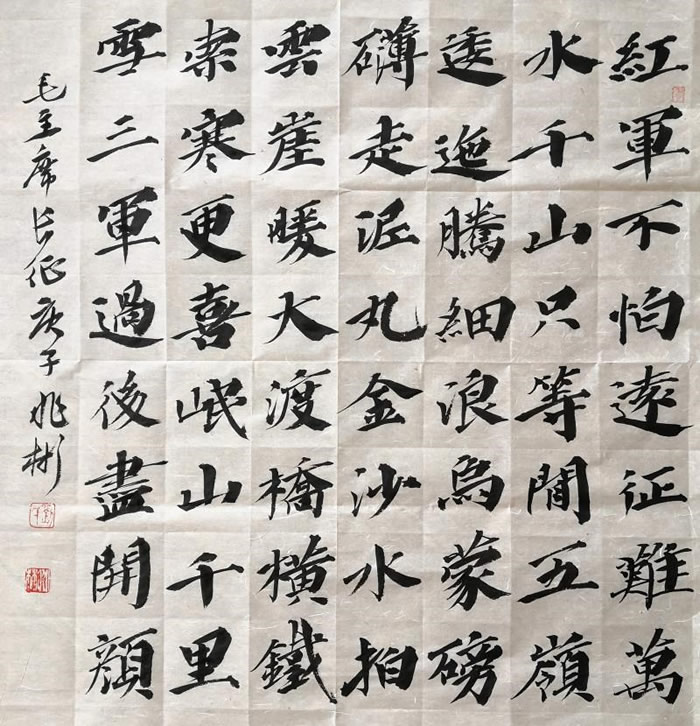 紅軍不怕遠征難萬
水千山只等閒五嶺
逶迤騰細浪烏蒙磅
礴走泥丸金沙水拍
雲崖暖大渡橋橫鐵
索寒更喜岷山千里
雪三軍過後盡開顏
毛主席长征庚子兆彬